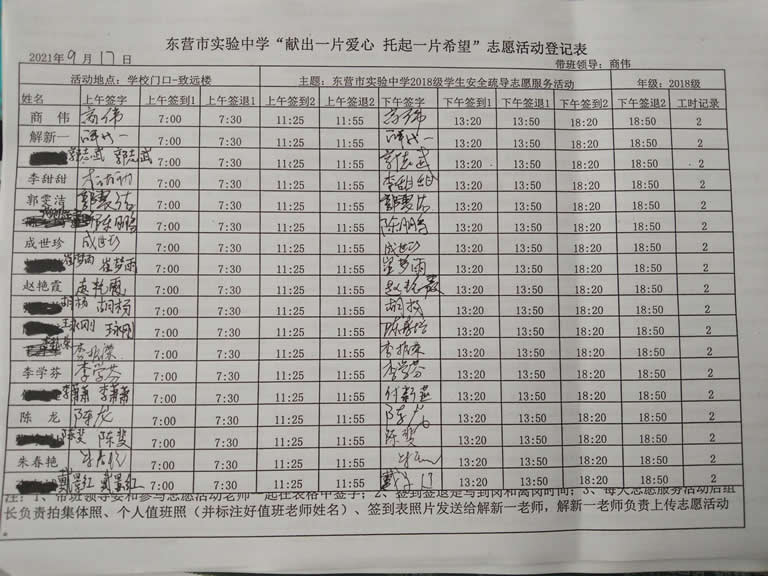 东营市实验中学“献出一片爱心 托起一片希望”志愿活动登记表
2021年9月17日 带班领导：商伟
活动地点：学校门口-致远楼 主题：东营市实验中学2018级学生安全疏导志愿服务活动 年级：2018级
姓名 上午签字 上午签到1 上午签退1 上午签到2 上午签退2 下午签字 下午签到1 下午签退1 下午签到2 下午签退2 工时记录
商 伟 商伟 7:00 7:30 11:25 11:55 商伟 13:20 13:50 18:20 18:50 2
解新一 7:00 7:30 11:25 11:55 13:20 13:50 18:20 18:50 2
郭志武 郭志武 7:00 7:30 11:25 11:55 郭志武 13:20 13:50 18:20 18:50 2
李甜甜 7:00 7:30 11:25 11:55 李甜甜 13:20 13:50 18:20 18:50 2
郭雯洁 郭雯洁 7:00 7:30 11:25 11:55 郭雯洁 13:20 13:50 18:20 18:50 2
陈鹏 7:00 7:30 11:25 11:55 陈鹏 13:20 13:50 18:20 18:50 2
成世珍 成世珍 7:00 7:30 11:25 11:55 成世珍 13:20 13:50 18:20 18:50 2
崔梦雨 崔梦雨 7:00 7:30 11:25 11:55 崔梦雨 13:20 13:50 18:20 18:50 2
赵艳霞 赵艳霞 7:00 7:30 11:25 11:55 赵艳霞 13:20 13:50 18:20 18:50 2
胡杨 胡杨 7:00 7:30 11:25 11:55 胡杨 13:20 13:50 18:20 18:50 2
王永刚 王永刚 7:00 7:30 11:25 11:55 13:20 13:50 18:20 18:50 2
7:00 7:30 11:25 11:55 13:20 13:50 18:20 18:50 2
李学芬 李学芬 7:00 7:30 11:25 11:55 李学芬 13:20 13:50 18:20 18:50 2
李萧萧 李萧萧 7:00 7:30 11:25 11:55 13:20 13:50 18:20 18:50 2
陈 龙 陈龙 7:00 7:30 11:25 11:55 陈龙 13:20 13:50 18:20 18:50 2
陈斐 陈斐 7:00 7:30 11:25 11:55 陈斐 13:20 13:50 18:20 18:50 2
朱春艳 7:00 7:30 11:25 11:55 13:20 13:50 18:20 18:50 2
戴景红 戴景红 7:00 7:30 11:25 11:55 13:20 13:50 18:20 18:50 2
注：1、带班领导要和参与志愿活动老师一起在表格中签字；2、签到签退是写到岗和离岗时间；3、每天志愿服务活动后组
长负责拍集体照、个人值班照（并标注好值班老师姓名）、签到表照片发送给解新一老师，解新一老师负责上传志愿活动